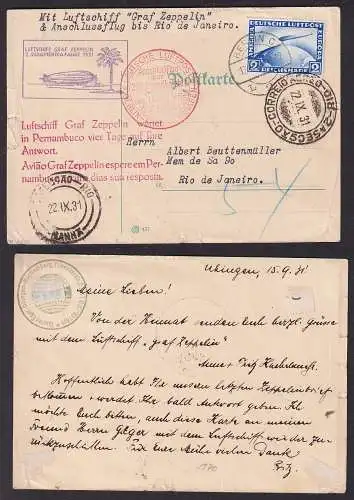 Mit Luftschiff "Graf Zeppelin"
& Anschlussflug bis Rio de Janeiro.
LUFTSCHIFF GRAF ZEPPELIN
2. SÜDAMERIKAFAHRT 1931
Postkarte
DEUTSCHE LUFTPOST
2
Luftschiff Graf Zeppelin wartet
in Pernambuco vier Tage auf Ihre
Antwort.
Avião Graf Zeppelin espera em Per-
nambuco dias sua resposta.
22.IX.31
Herrn
Albert Beuttenmüller
Mem de Sa 8o
Rio de Janeiro.
22.IX.31
Uhingen, 15.9.31
Meine Lieben!
Von der Heimat senden Euch herzl. Grüsse
mit dem Luftschiff „Graf Zeppelin"
Hoffentlich habt Ihr unseren letzten Zeppelinbrief
bekommen & werdet Ihr bald Antwort geben. Ich
möchte Euch bitten, auch diese Karte an meinen
Freund Herrn Geiger mit dem Luftschiff wieder zu-
rückzuschicken. Für Eure Mühe vielen Dank
Fritz.